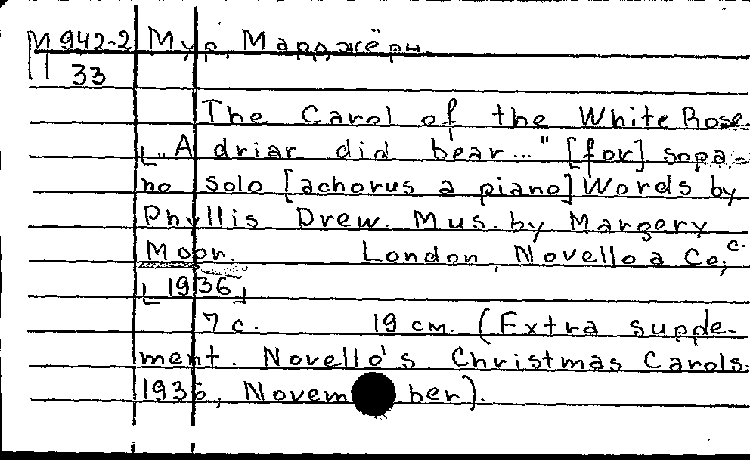 М 942-2 Мур, Марджёри.
11 33
The Carol of the White Rose.
[„A driar did bear..." [for] sopa-
no solo [achorus a piano] Words by
Phyllis Drew. Mus. by Margery
Moor. London, Novello a Co, c.
[1936]
7 с. 19 см. (Extra supple-
ment. Novello's Christmas Carols.
1936, November).